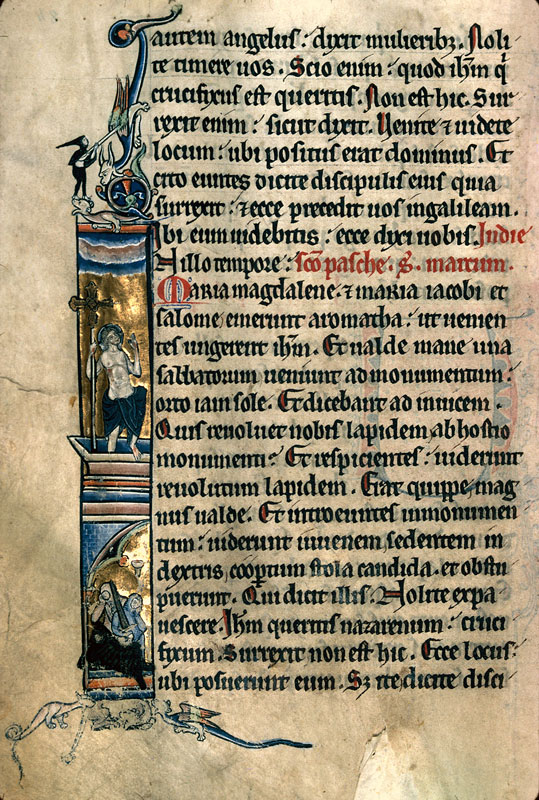 autem angelus : dixit mulieribz . Noli
te timere uos . Scio enim : quod ihm q
crucifixus est queritis . Non est hic . Sur
rexit enim : sicut dixit . Uenite ⁊ uidete
locum : ubi positus erat dominus . Et
cito euntes dicite discipulis eius quia
surrexit : ⁊ ecce precedit uos in galileam .
Ibi eum uidebitis : ecce dixi nobis . In die
In illo tempore : sco pasche . S . marcum .
Maria magdalene . ⁊ maria iacobi et
salome emerunt aromatha : ut uenien
tes ungerent ihm . Et ualde mane una
sabbatorum ueniunt ad monumentum :
orto iam sole . Et dicebant ad inuicem .
Quis reuoluet nobis lapidem ab hostio
monumenti : Et respicientes : uiderunt
reuolutum lapidem . Erat quippe mag
nus ualde . Et introeuntes in monumen
tum : uiderunt iuuenem sedentem in
dextris , coopertum stola candida . et obstu
puerunt . Qui dicit illis . Nolite expa
uescere . Ihm queritis nazarenum : cruci
fixum . Surrexit non est hic . Ecce locus :
ubi posuerunt eum . Sz ite dicite disci